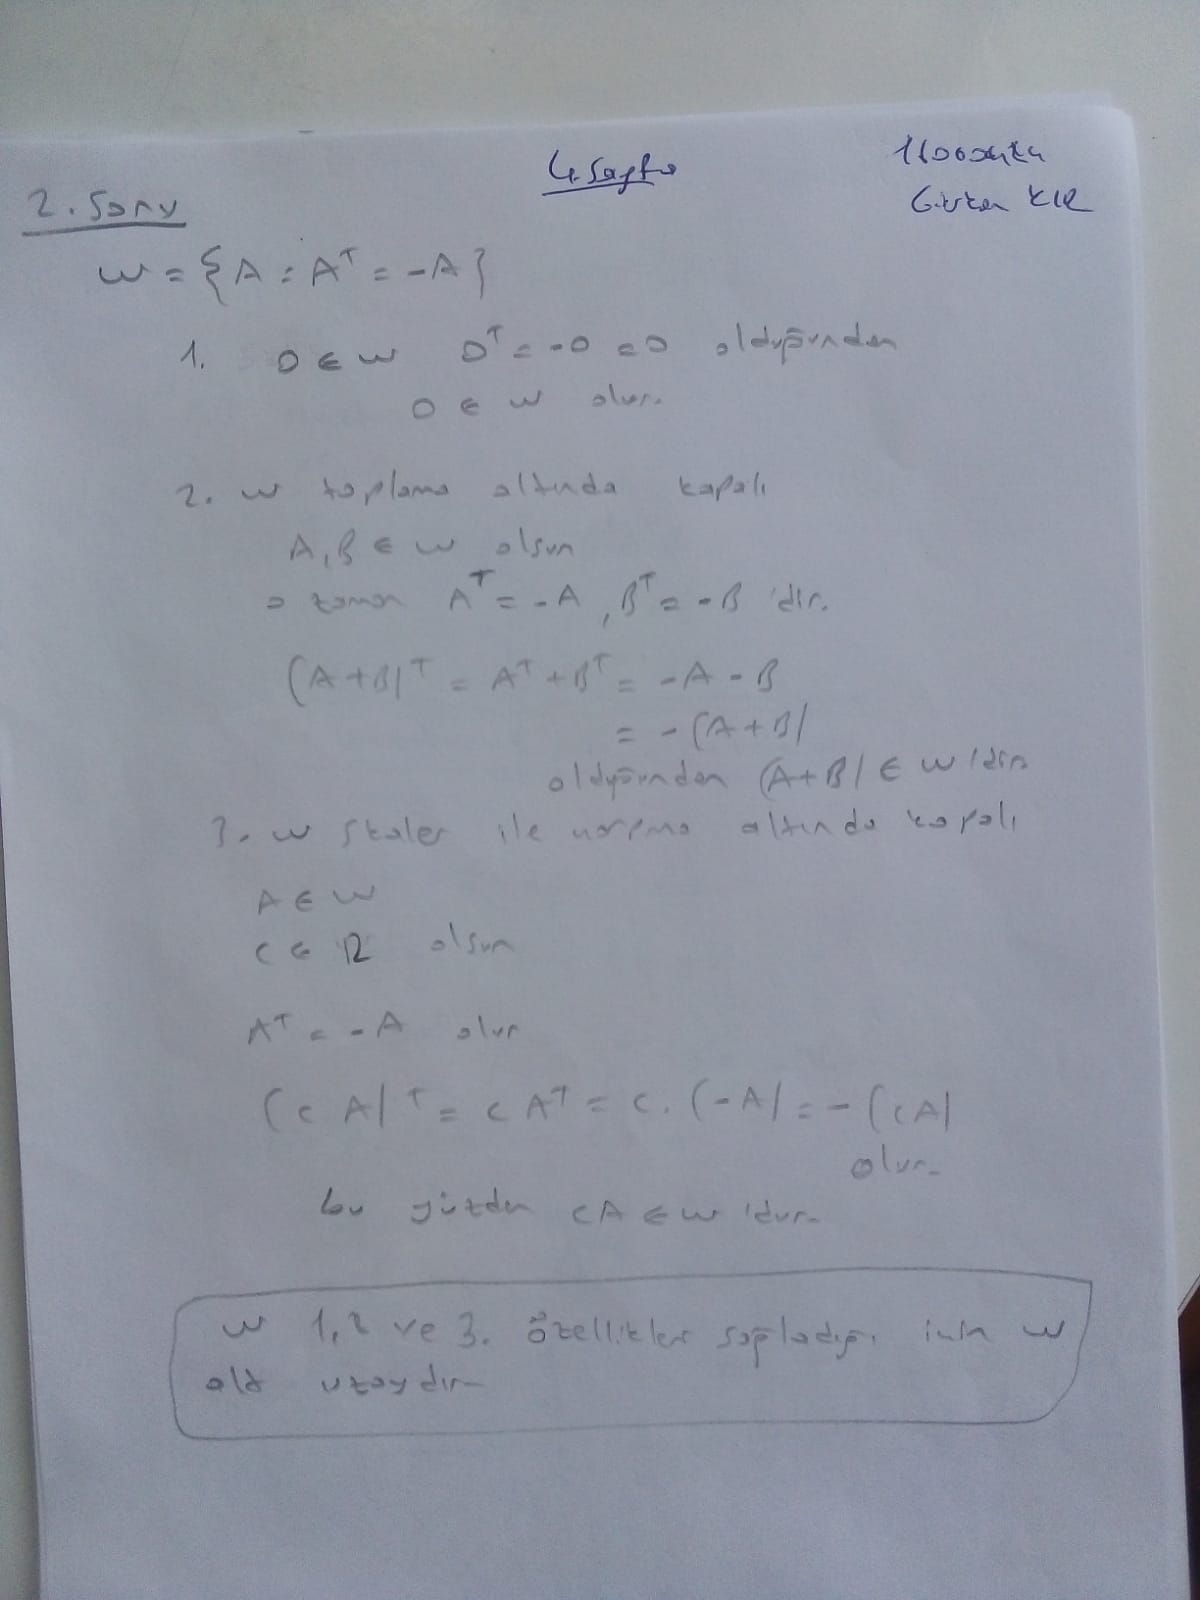 4. Sayfa
2. Soru
W = {A : Aᵀ = -A}
1. 0 ∈ W 0ᵀ = -0 = 0 olduğundan
0 ∈ W olur.
2. W toplama altında kapalı
A, B ∈ W olsun
o zaman Aᵀ = -A, Bᵀ = -B 'dir.
(A+B)ᵀ = Aᵀ + Bᵀ = -A - B
= -(A+B)
olduğundan (A+B) ∈ W 'dir
3. W skaler ile çarpma altında kapalı
A ∈ W
c ∈ R olsun
Aᵀ = -A olur
(cA)ᵀ = cAᵀ = c.(-A) = -(cA)
olur.
bu yüzden cA ∈ W 'dur.
W 1, 2 ve 3. özellikler sağladığı için W
alt uzaydır.